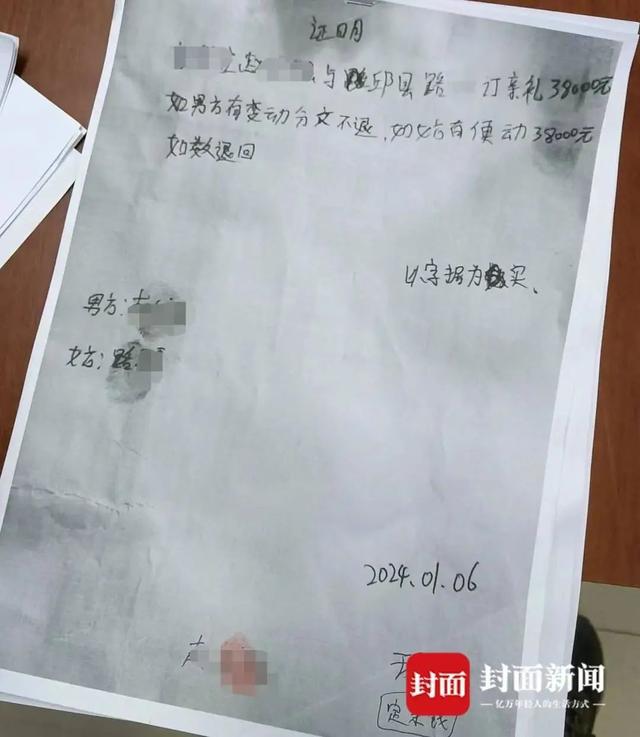 证明
与邱县路 订亲礼38000元
如男方有变动分文不退,如女方有便动38000元
如数退回
以字据为实.
男方:
女方:路
2024.01.06
封面 封面新闻
亿万年轻人的生活方式